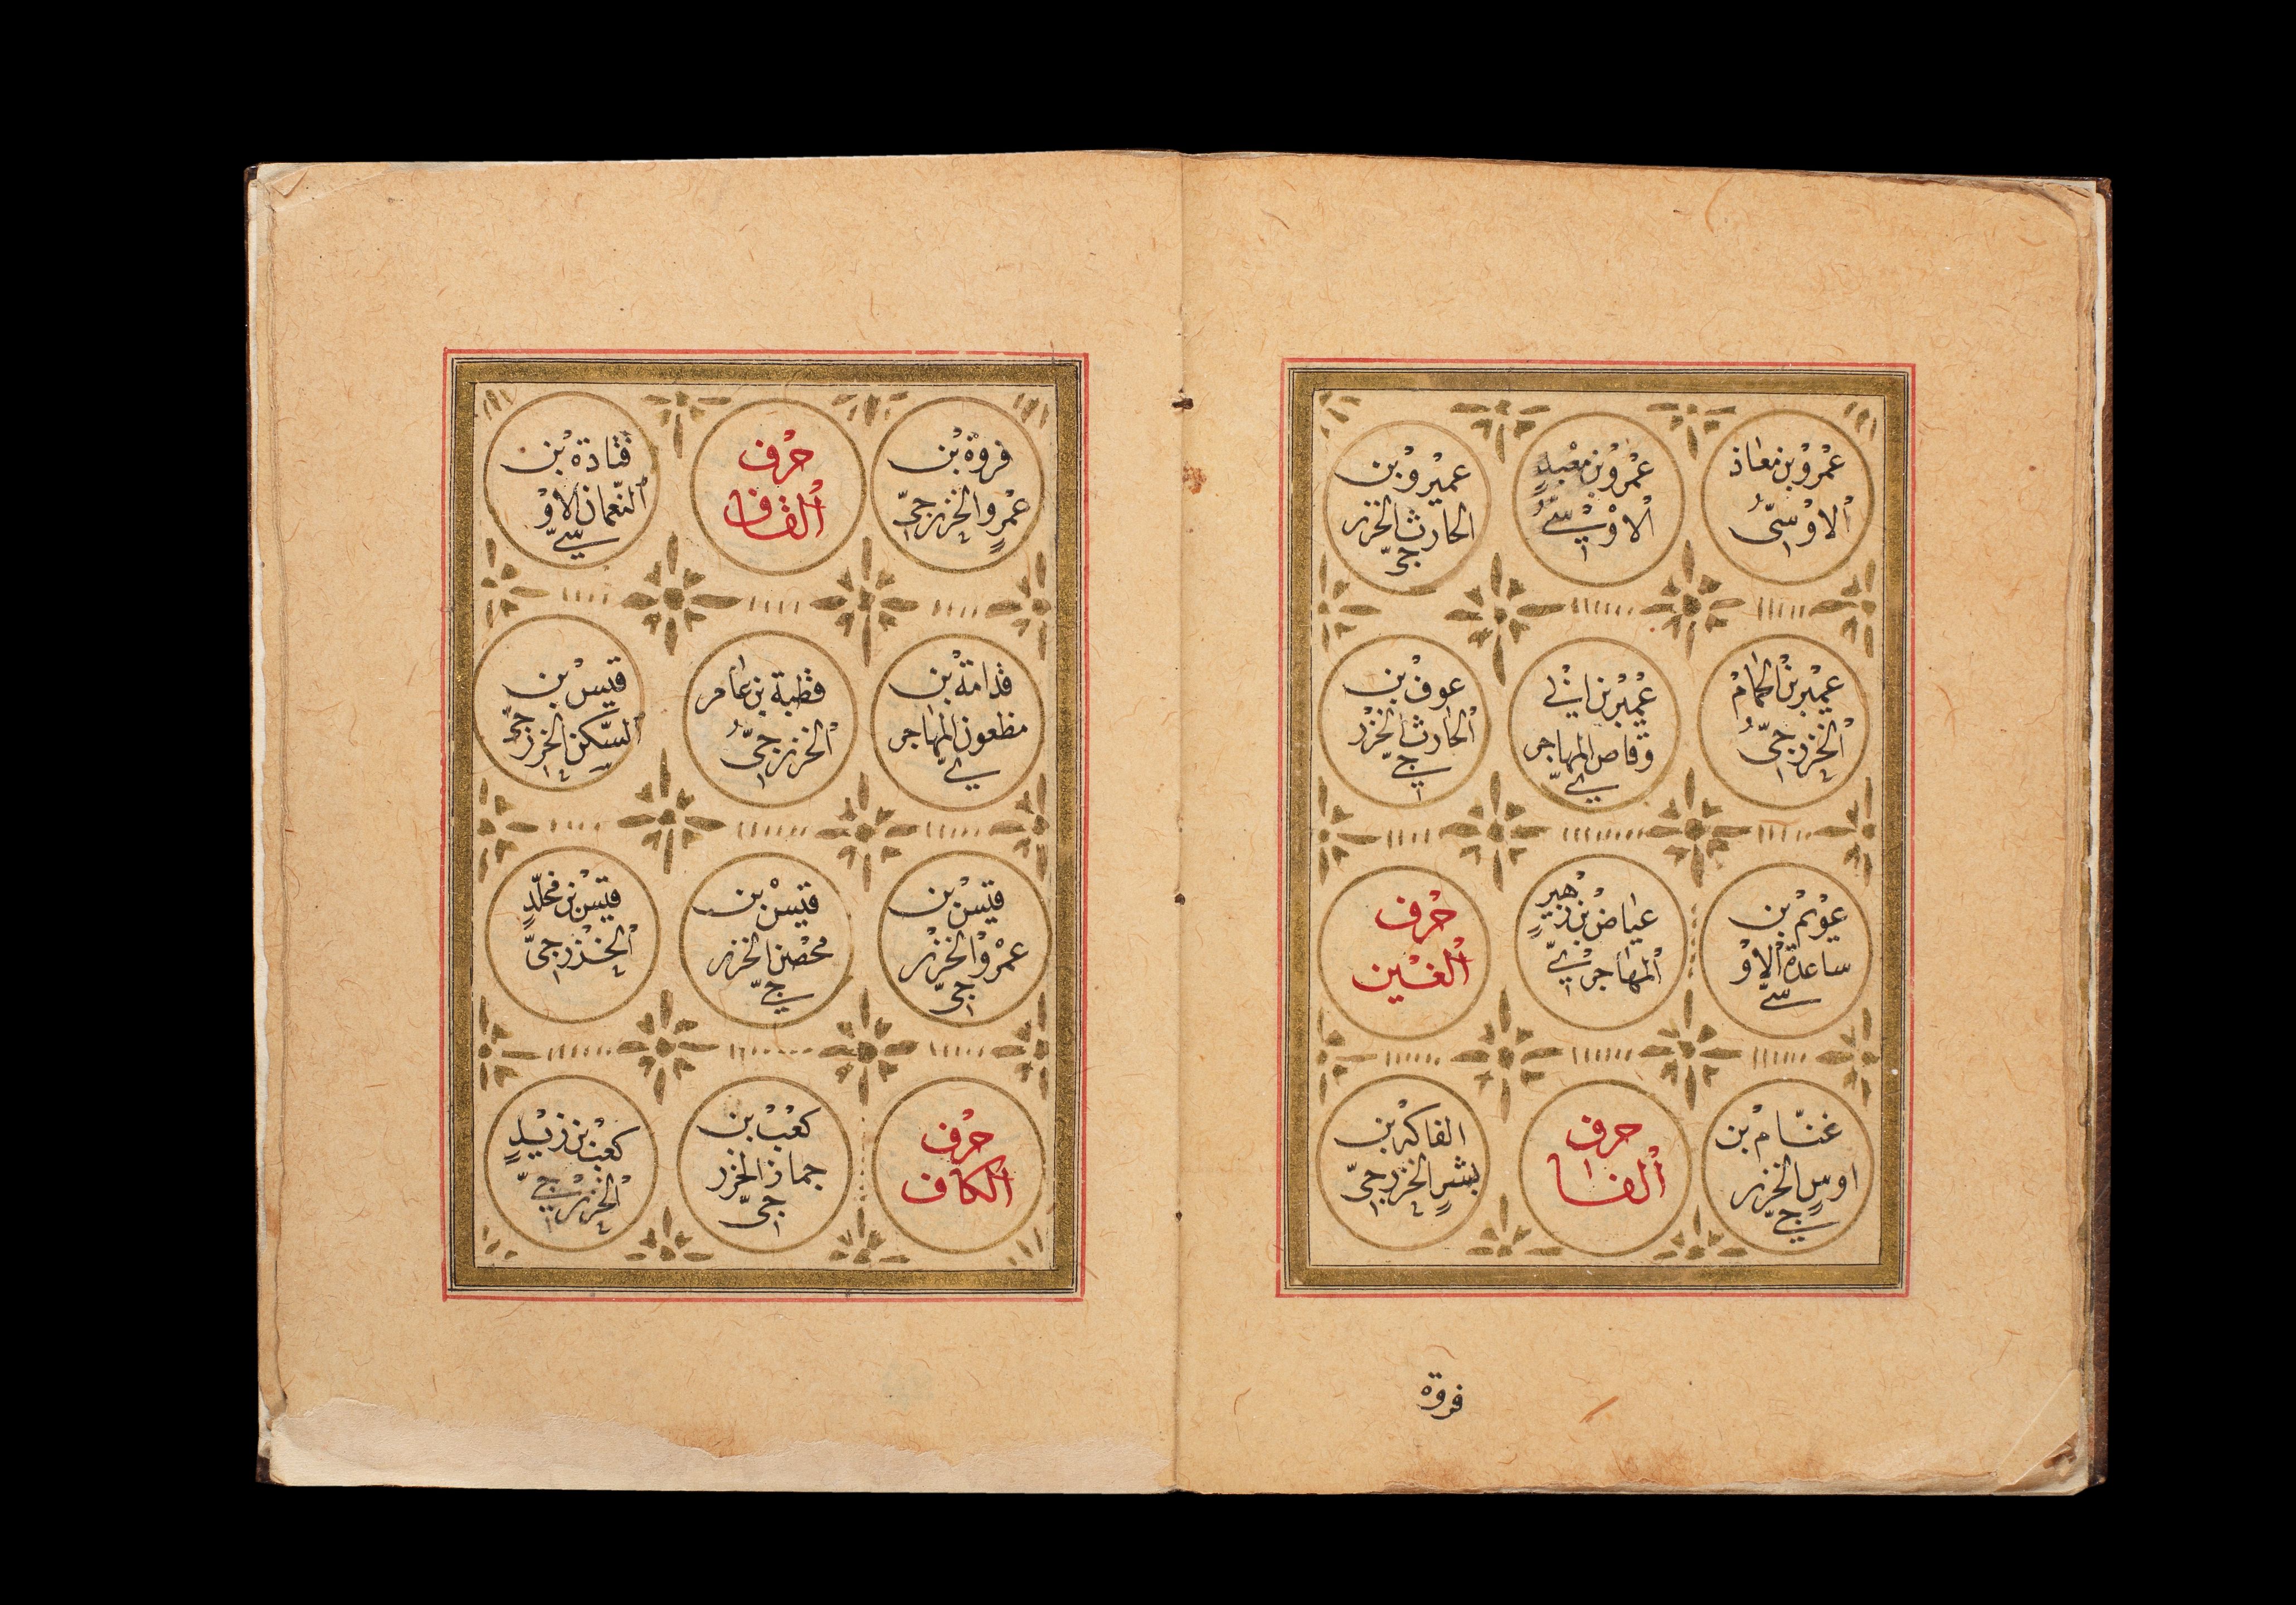 عمرو بن معاذ
الاوسي
عمرو بن معبد
الاوسي
عميرو بن
الحارث الخزر
جي
عمير بن الحمام
الخزرجي
عمير بن ابي
وقاص المهاجر
ي
عوف بن
الحارث الخزر
جي
عويم بن
ساعدة الاو
سي
عياض بن زهير
المهاجري
حرف
الغين
غنام بن
اوس الخزر
جي
حرف
الفا
الفاكه بن
بشر الخزرجي
فروة
فروة بن
عمرو الخزرجي
حرف
القاف
قتادة بن
النعمان الاو
سي
قدامة بن
مظعون المهاجر
ي
قطبة بن عامر
الخزرجي
قيس بن
السكن الخزرجي
قيس بن
عمرو الخزر
جي
قيس بن
محصن الخزر
جي
قيس بن مخلد
الخزرجي
حرف
الكاف
كعب بن
جماز الخزر
جي
كعب بن زيد
الخزرجي